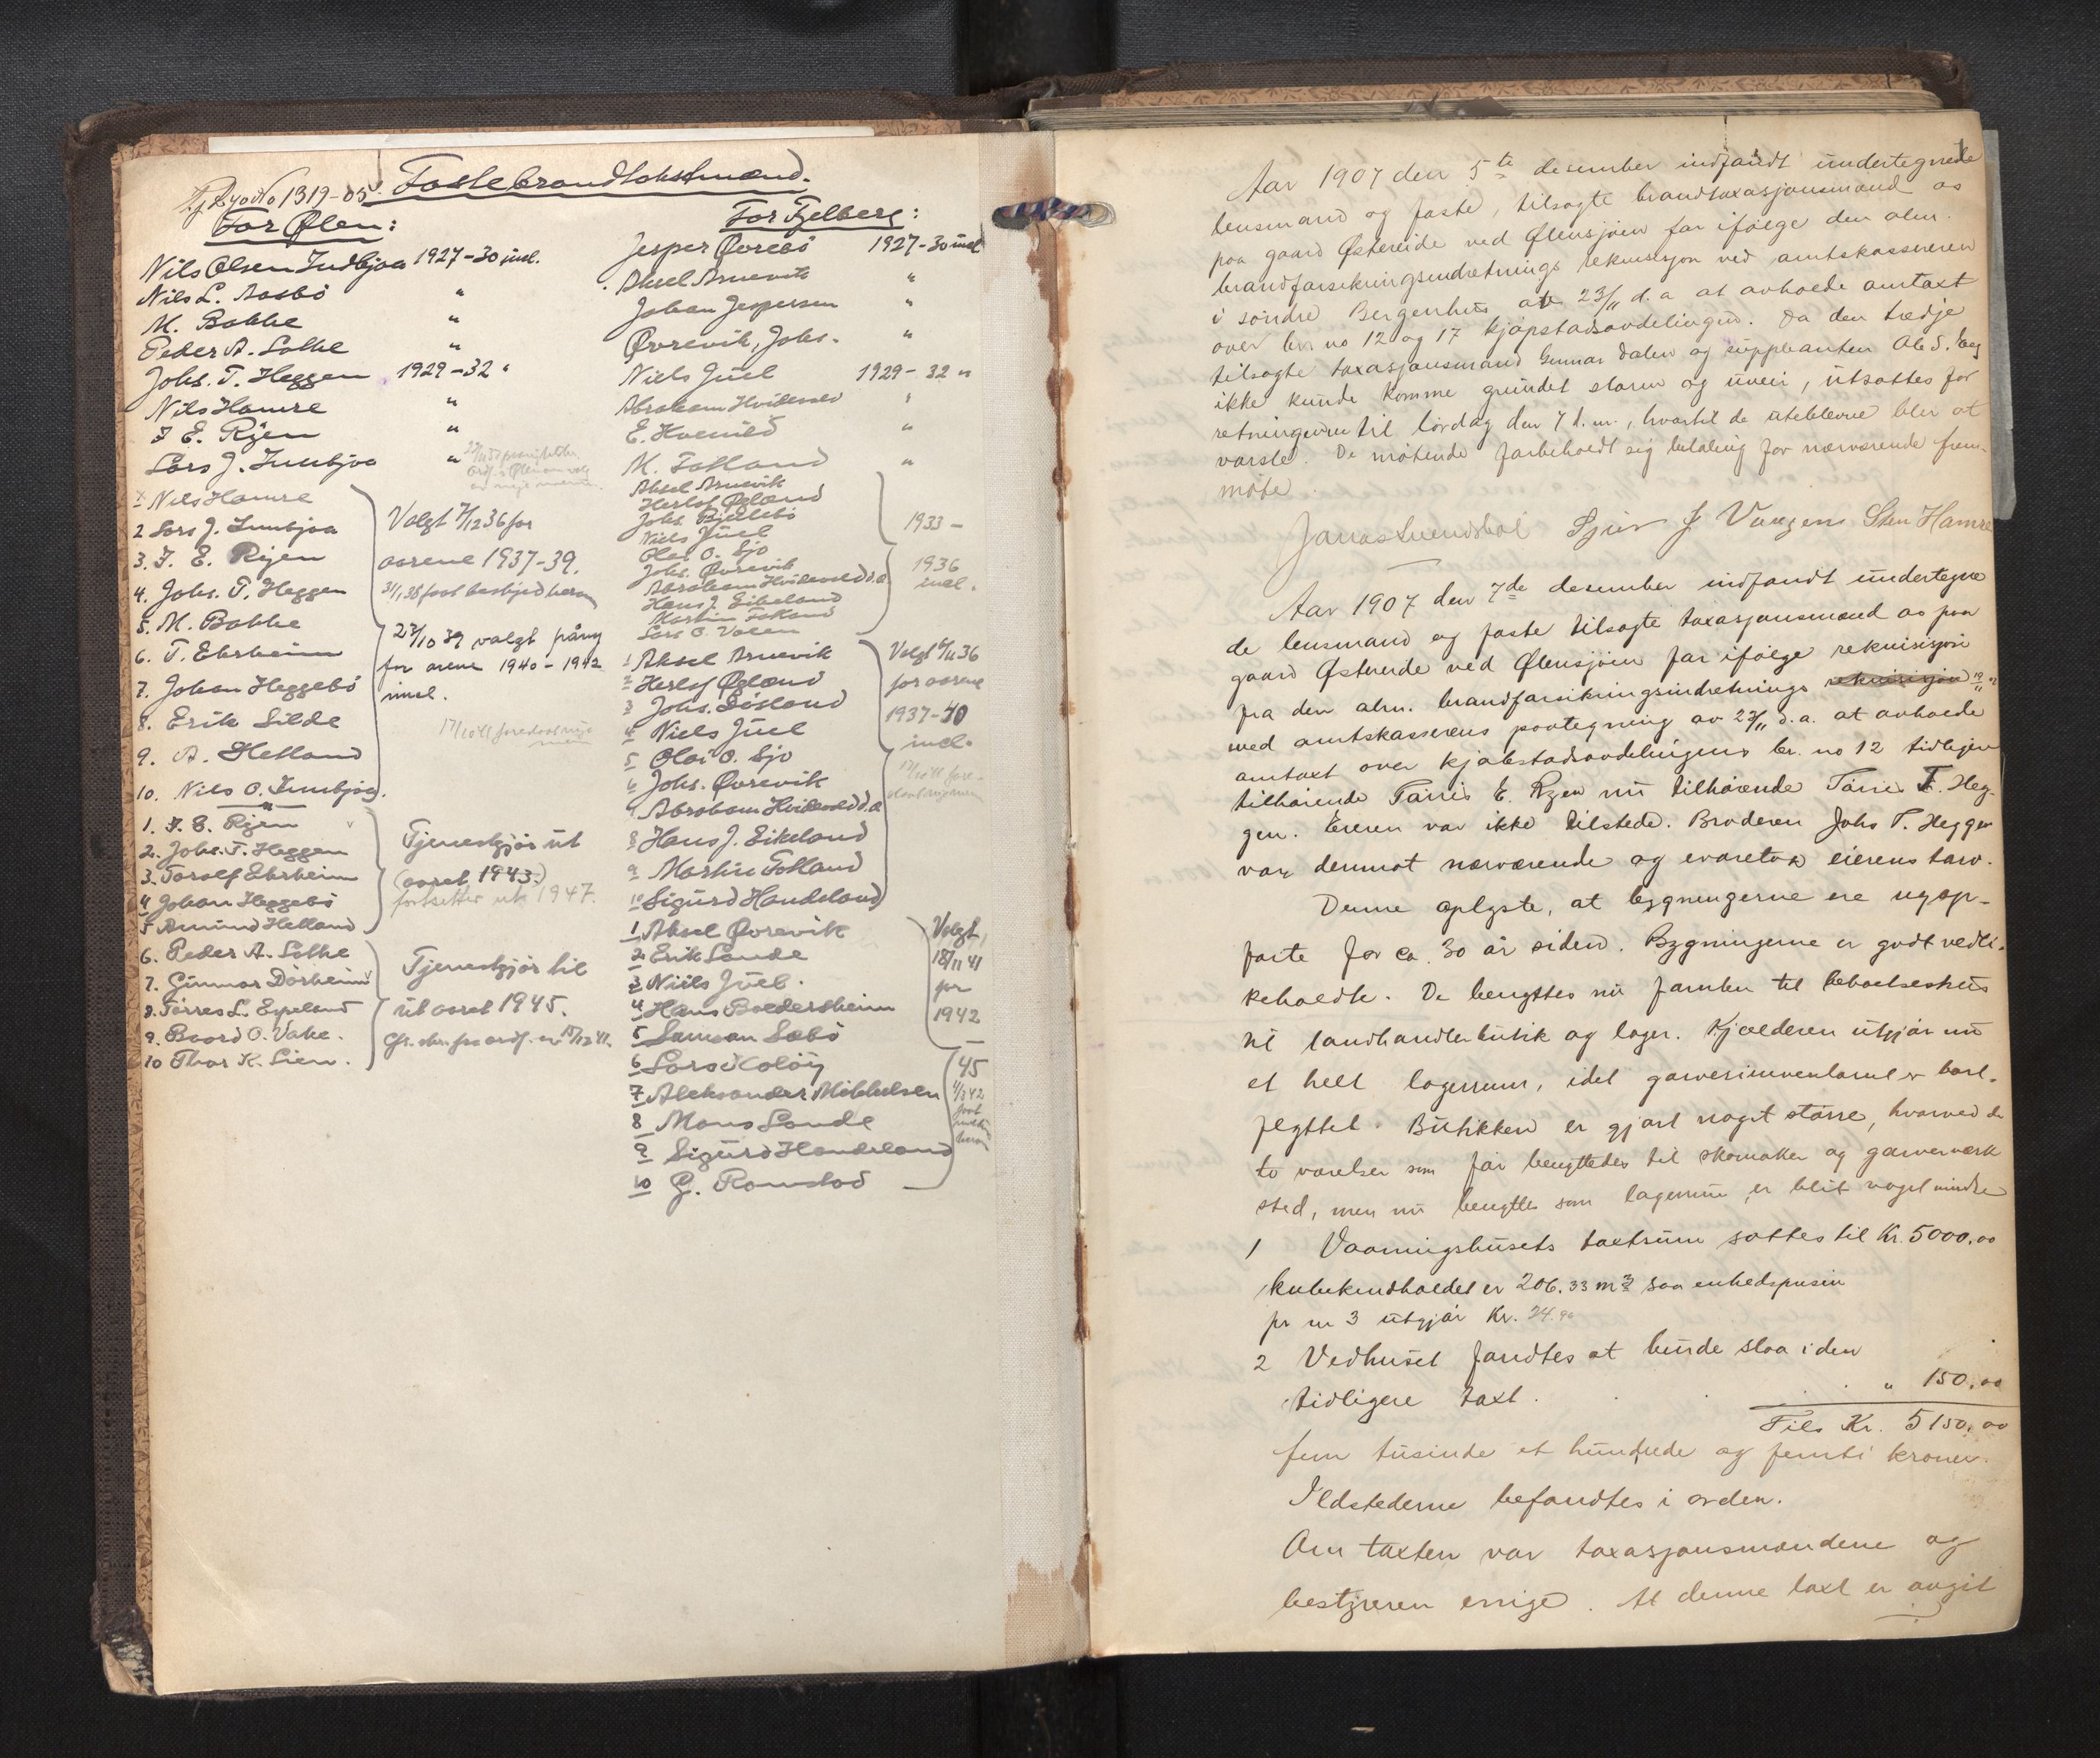 Faste brandtakstmænd.
No 1319-05
For Ølen:
Nils Olsen Indbjoa 1927-30 incl.
Nils L. Aasbø "
M. Bakke "
Peder A. Lothe "
Johs. T. Heggen 1929-32 "
Nils Hamre "
T. E. Rygen "
Lars J. Innbjoa "
x Nils Hamre
2 Lars J. Innbjoa
3. T. E. Rygen
4. Johs. T. Heggen
5. M. Bakke
6. T. Ehrheim
7. Johan Heggebø
8. Erik Silde
9. A. Hetland
10. Nils O. Innbjoa.
Valgt 7/12 36 for
aarene 1937-39.
31/1 38 faat beskjed herom
27/10 39 valgt påny
for årene 1940-1942
incl.
1. T. E. Rygen
2. Johs. T. Heggen
3. Torolf Ehrheim
4 Johan Heggebø
5 Amund Hetland
Tjenestgjør ut
(aaret 1943.)
fortsetter ut 1947.
6. Peder A. Lothe
7. Gunnar Dørheim
8. Tørres L. Espeland
9. Baard O. Vake.
10 Thor K. Lien.
Tjenestgjør til
ut aaret 1945.
For Fjelberg:
Jesper Øvrebø 1927-30 incl
Aksel Arnevik "
Johan Jespersen "
Øvrevik, Johs. "
Niels Juel 1929-32 "
Abraham Hvidevold "
E. Hvenild "
M. Tolland "
Aksel Arnevik
Herlof Øgland
Johs. Bjelebø
Niels Juel
Olai O. Sjo
Johs. Øvrevik
Abraham Hvidevold d.æ.
Hans J. Eikeland
Martin Tolland
Lars O. Valen
1933 -
1936
incl.
1 Aksel Arnevik
2 Herlof Øgland
3 Johs. Løsland
4 Niels Juel
5 Olai O. Sjo
6 Johs. Øvrevik
7 Abraham Hvidevold d.æ
8 Hans J. Eikeland
9 Martin Tolland
10 Sigurd Handeland
Valgt 6/11 36
for aarene
1937-40
incl.
1 Aksel Øvrevik
2 Erik Sande
3 Niels Juel.
4 Hans Baldersheim
5 Samson Sæbø
6 Lars Koløy
7 Aleksander Mikkelsen
8 Mons Sande
9 Sigurd Handeland
10 G. Ramstad
Valgt
18/11 41
pr
1942
45
Aar 1907 den 5te desember indfandt undertegnede
lensmand og faste, tilsagte brandtaxasjonsmænd os
paa gaard Østereide ved Ølensjøen for ifølge den alm.
brandforsikringsindretnings rekvisisjon ved amtskassereren
i søndre Bergenhus av 23/11 d.a at avholde omtaxt
over br. no 12 og 17 kjøpstadsavdelingen. Da den tredje
tilsagte taxasjonsmand Gunnar Dalen og suppleanten Ole S. Berg
ikke kunde komme grundet storm og uveir, utsattes for
retningerne til lørdag den 7 d.m., hvortil de uteblevne blir at
varsle. De møtende forbeholdt sig betaling for nærværende frem-
møte.
Jonas Svendsbøl Sjur J Vangen Sten Hamre
Aar 1907 den 7de desember indfandt undertegne
de lensmand og faste tilsagte taxasjonsmænd os paa
gaard Østereide ved Ølensjøen for ifølge rekvisisjon
fra den alm. brandforsikringsindretnings rekvisisjon
med amtskasserens paategning av 23/11 d.a. at avholde
omtaxt over kjøbstadsavdelingens br. no 12 tidligere
tilhørende Tørris E. Rygen nu tilhørende Tørris T. Heg-
gen. Eieren var ikke tilstede. Broderen Johs T. Heggen
var derimot nærværende og ivaretok eierens tarv.
Denne oplyste, at bygningerne ere ny op-
førte for ca. 30 år siden. Bygningerne er godt vedli-
keholdte. De benyttes nu foruten til beboelseshus
til landhandlerbutik og lager. Kjælderen utgjør nu
et helt lagerrum, idet garveriinventaret er bort-
flyttet. Butikken er gjort noget større, hvorved de
to værelser som før benyttedes til skomaker og garververk
sted, men nu benyttes som lagerrum er blit noget mindre
1 Vaaningshusets taxtsum sattes til Kr. 5000.00
kubikindholdet er 206.33 m3 saa enhedsprisen
pr m 3 utgjør Kr. 24.90
2 Vedhuset fandtes at burde staa i den
tidligere taxt. " 150.00
Tils Kr. 5150.00
fem tusinde et hundrede og femti kroner.
Ildstederne befandtes i orden.
Om taxten var taxasjonsmændene og
bestyreren enige. At denne taxt er avgit